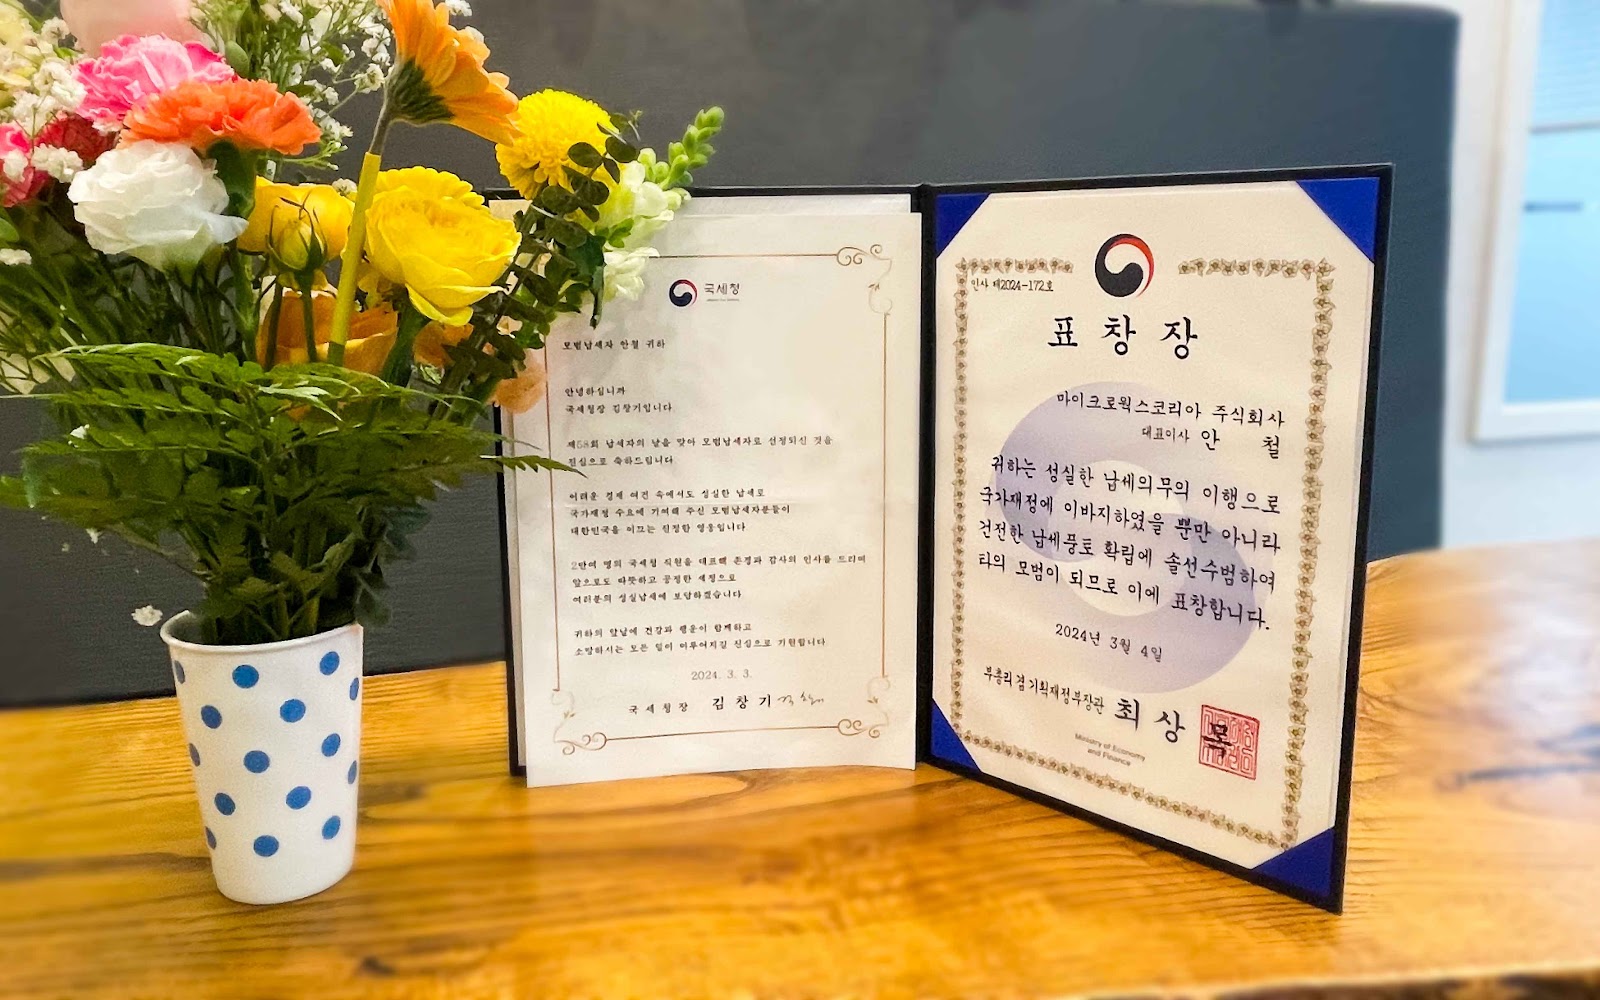 국세청
모범납세자 안철 귀하
안녕하십니까
국세청장 김창기입니다
제58회 납세자의 날을 맞아 모범납세자로 선정되신 것을
진심으로 축하드립니다
어려운 경제 여건 속에서도 성실한 납세로
국가재정 수요에 기여해 주신 모범납세자분들이
대한민국을 이끄는 진정한 영웅입니다
2만여 명의 국세청 직원을 대표해 존경과 감사의 인사를 드리며
앞으로도 따뜻하고 공정한 세정으로
여러분의 성실납세에 보답하겠습니다
귀하의 앞날에 건강과 행운이 함께하고
소망하시는 모든 일이 이루어지길 진심으로 기원합니다
2024. 3. 3.
국세청장 김창기
인사 제2024-172호
표창장
마이크로웍스코리아 주식회사
대표이사 안 철
귀하는 성실한 납세의무의 이행으로
국가재정에 이바지하였을 뿐만 아니라
건전한 납세풍토 확립에 솔선수범하여
타의 모범이 되므로 이에 표창합니다.
2024년 3월 4일
부총리 겸 기획재정부장관 최상목
Ministry of Economy
and Finance